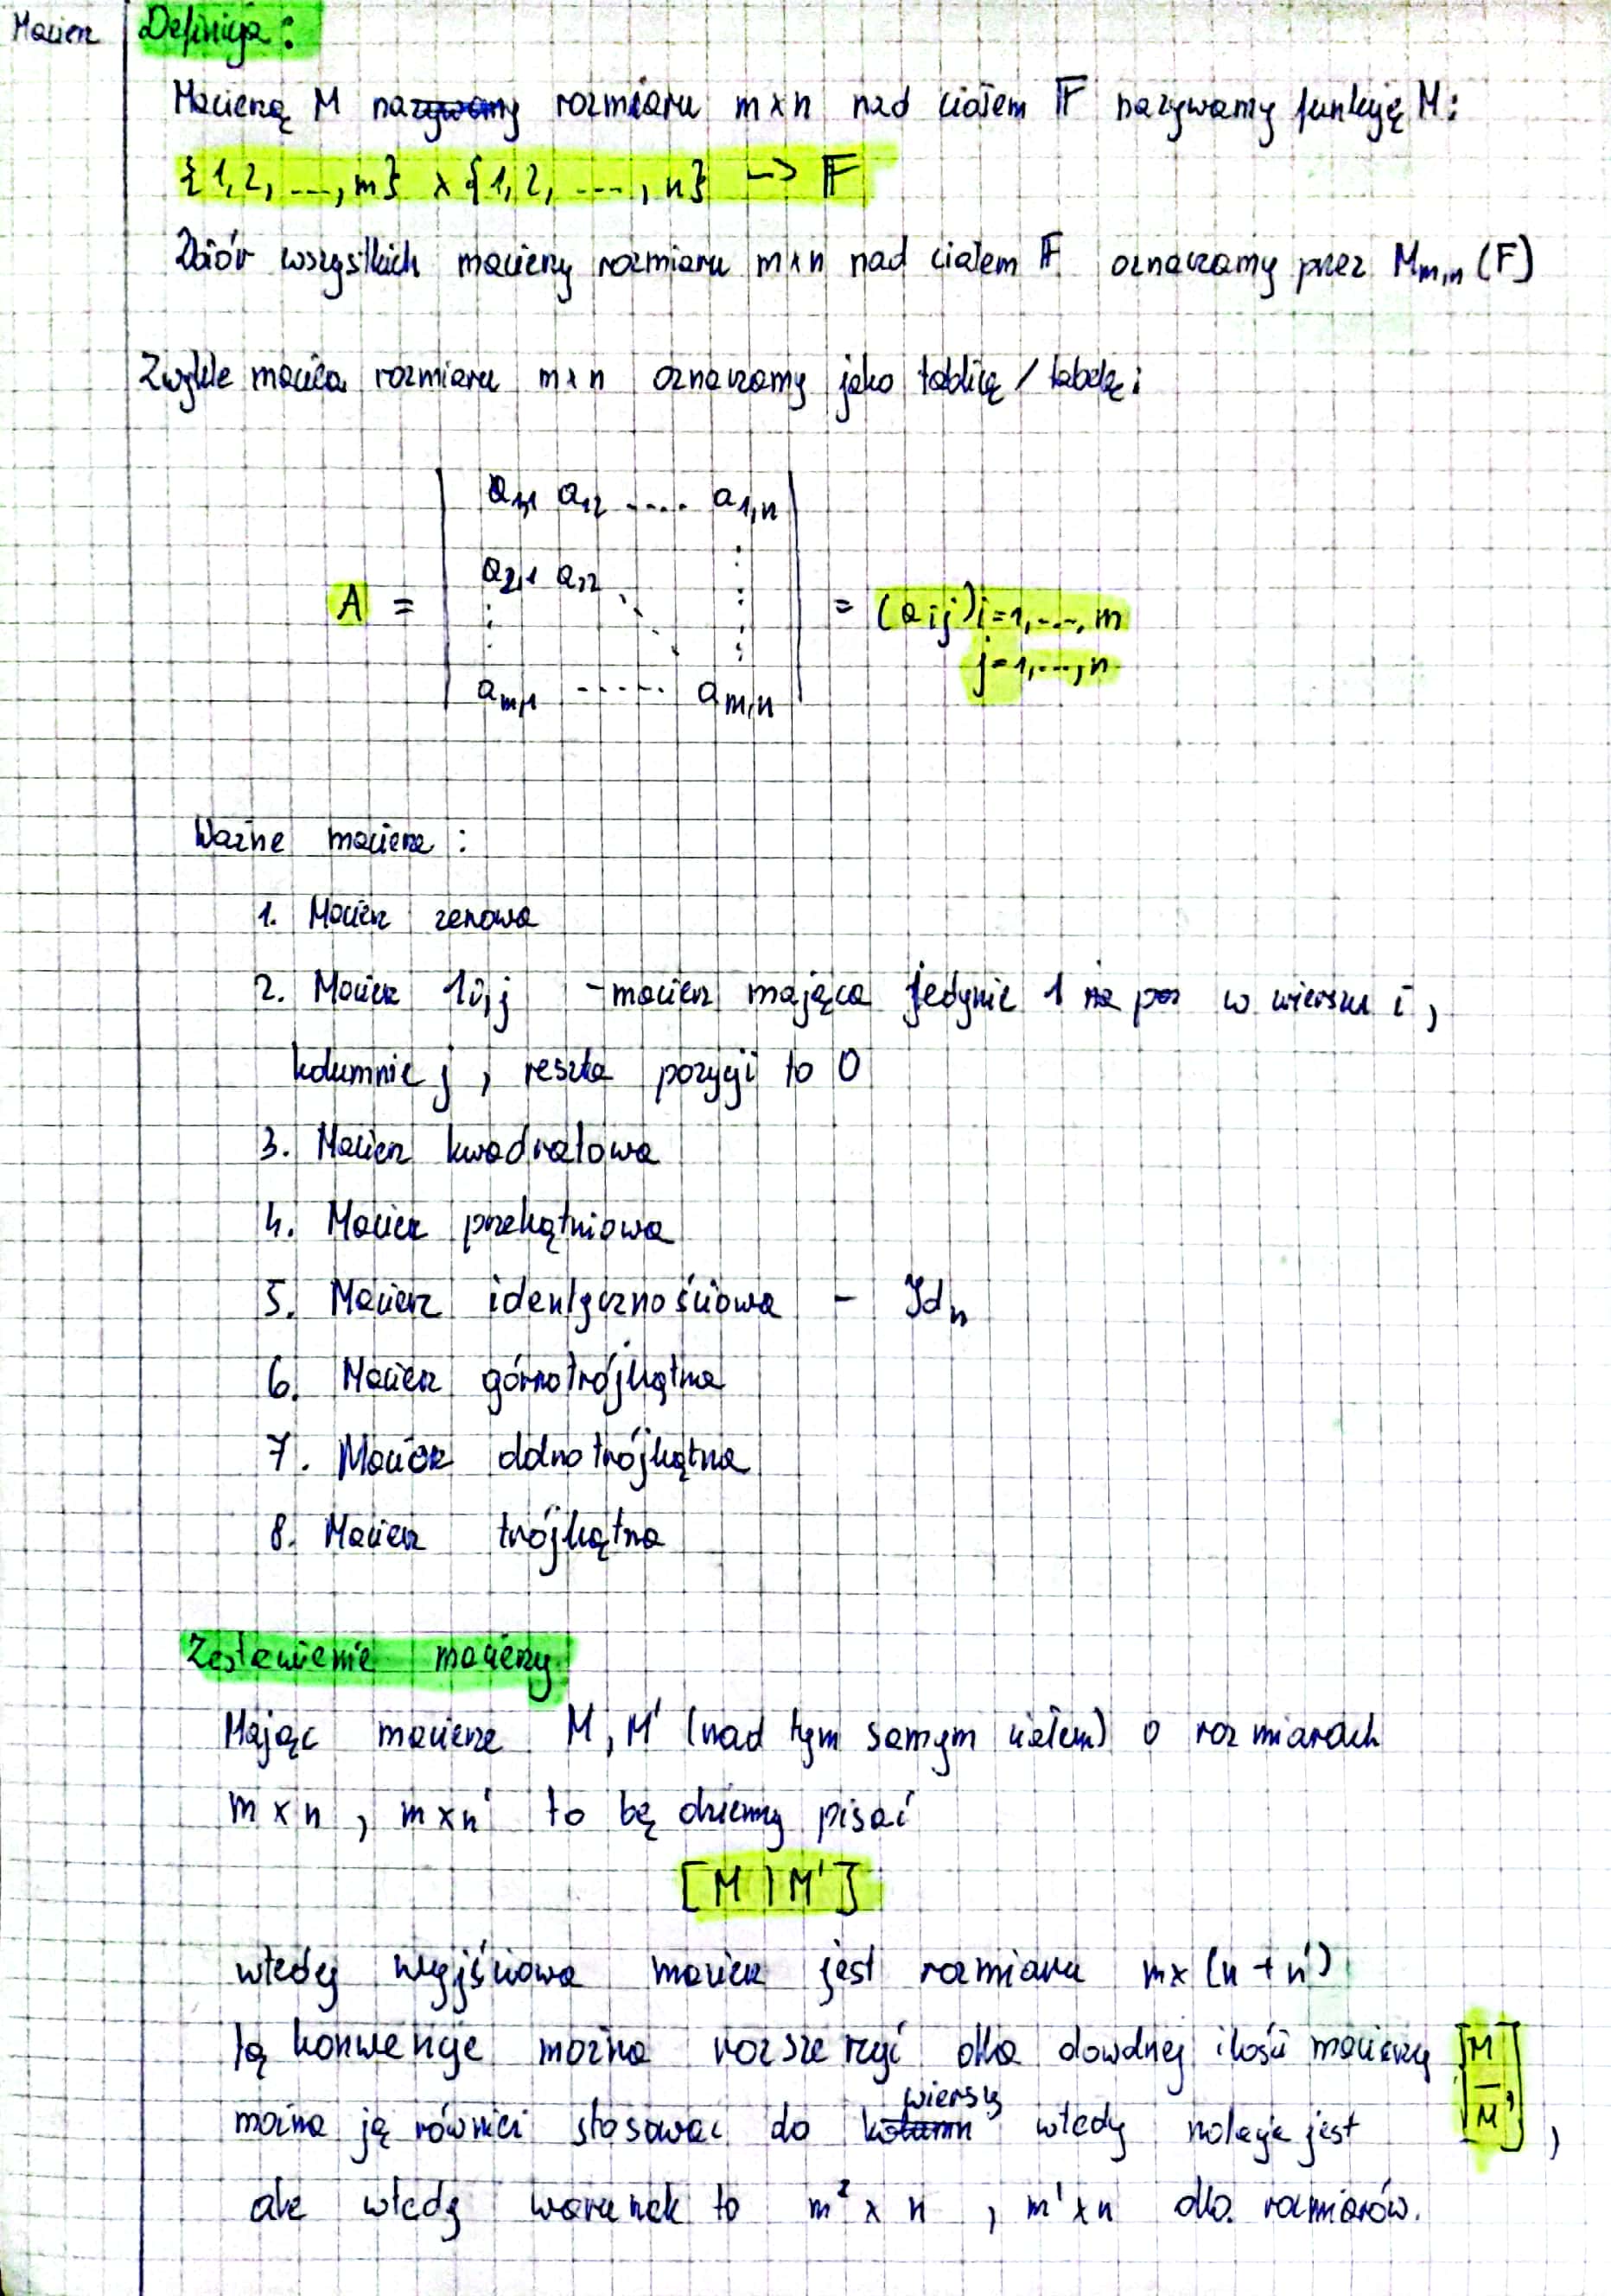 Macierz
Definicja:
Macierzą M nazywamy rozmiaru m x n nad ciałem 𝔽 nazywamy funkcję M:
{1,2, ..., m} x {1,2, ..., n} -> 𝔽
Zbiór wszystkich macierzy rozmiaru m x n nad ciałem 𝔽 oznaczamy przez M_{m,n} (F)
Zwykle macierz rozmiaru m x n oznaczamy jako tablicę / tabelę:
a_{1,1} a_{12} ..... a_{1,n}
a_{2,1} a_{22}
A = = (a_{ij}) i=1,...,m
j=1,...,n
a_{m,1} ...... a_{m,n}
Ważne macierze:
1. Macierz zerowa
2. Macierz 1i,j - macierz mająca jedynie 1 na poz w wierszu i,
kolumnie j, reszta pozycji to 0
3. Macierz kwadratowa
4. Macierz przekątniowa
5. Macierz identycznościowa - Id_n
6. Macierz górnotrójkątna
7. Macierz dolnotrójkątna
8. Macierz trójkątna
Zestawienie macierzy
Mając macierze M, M' (nad tym samym ciałem) o rozmiarach
m x n, m x n' to będziemy pisać
[M | M']
wtedy wyjściowa macierz jest rozmiaru m x (n + n')
tą konwencje można rozszerzyć dla dowolnej ilości macierzy
można ją również stosować do kolumn wierszy wtedy notacja jest [M / M'],
ale wtedy warunek to m² x n, m' x n dla rozmiarów.